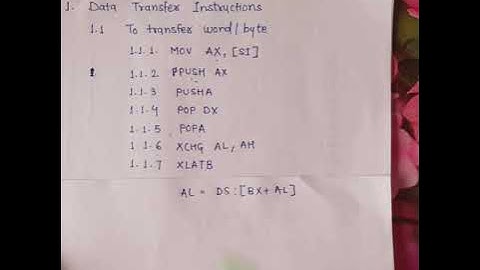 1. Data Transfer Instructions
1.1 To transfer word/byte
1.1.1. MOV AX, [SI]
1.1.2 PPUSH AX
1.1.3 PUSHA
1.1.4 POP DX
1.1.5 POPA
1.1.6 XCHG AL, AH
1.1.7 XLATB
AL = DS:[BX+AL]